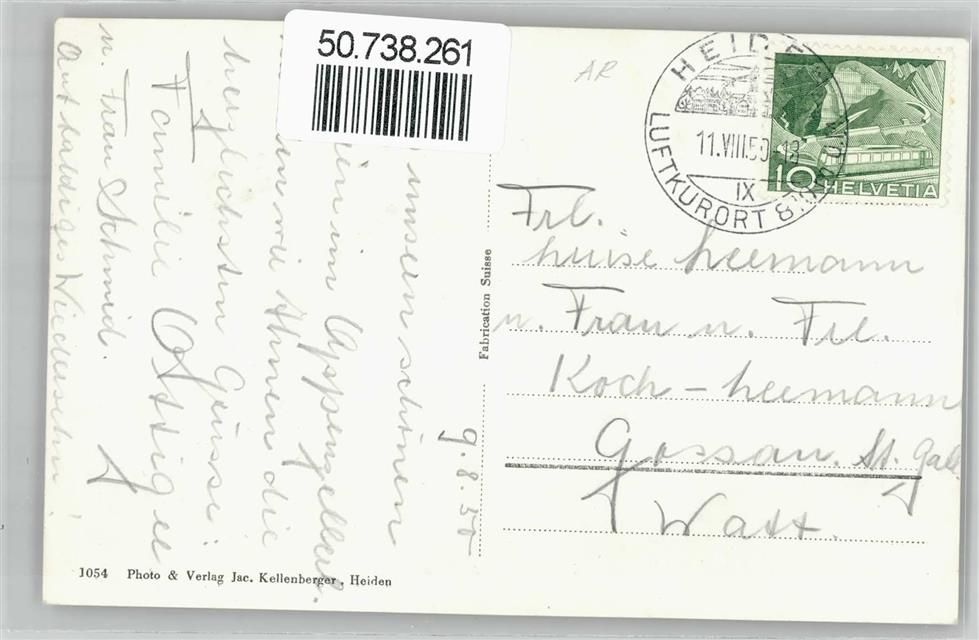 50.738.261
AR
HEIDEN
11.VIII.50-18
IX
LUFTKURORT
10 HELVETIA
9.8.50
unsern schönen
Ferien im Appenzellerl.
senden wir Ihnen die
herzlichsten Grüsse:
Familie
u. Frau Schmid.
Auf baldiges Wiedersehn!
Frl.
Luise Leemann
u. Frau u. Frl.
Koch-Leemann
Gossau. St. Gall
Watt.
Fabrication Suisse
1054 Photo & Verlag Jac. Kellenberger, Heiden